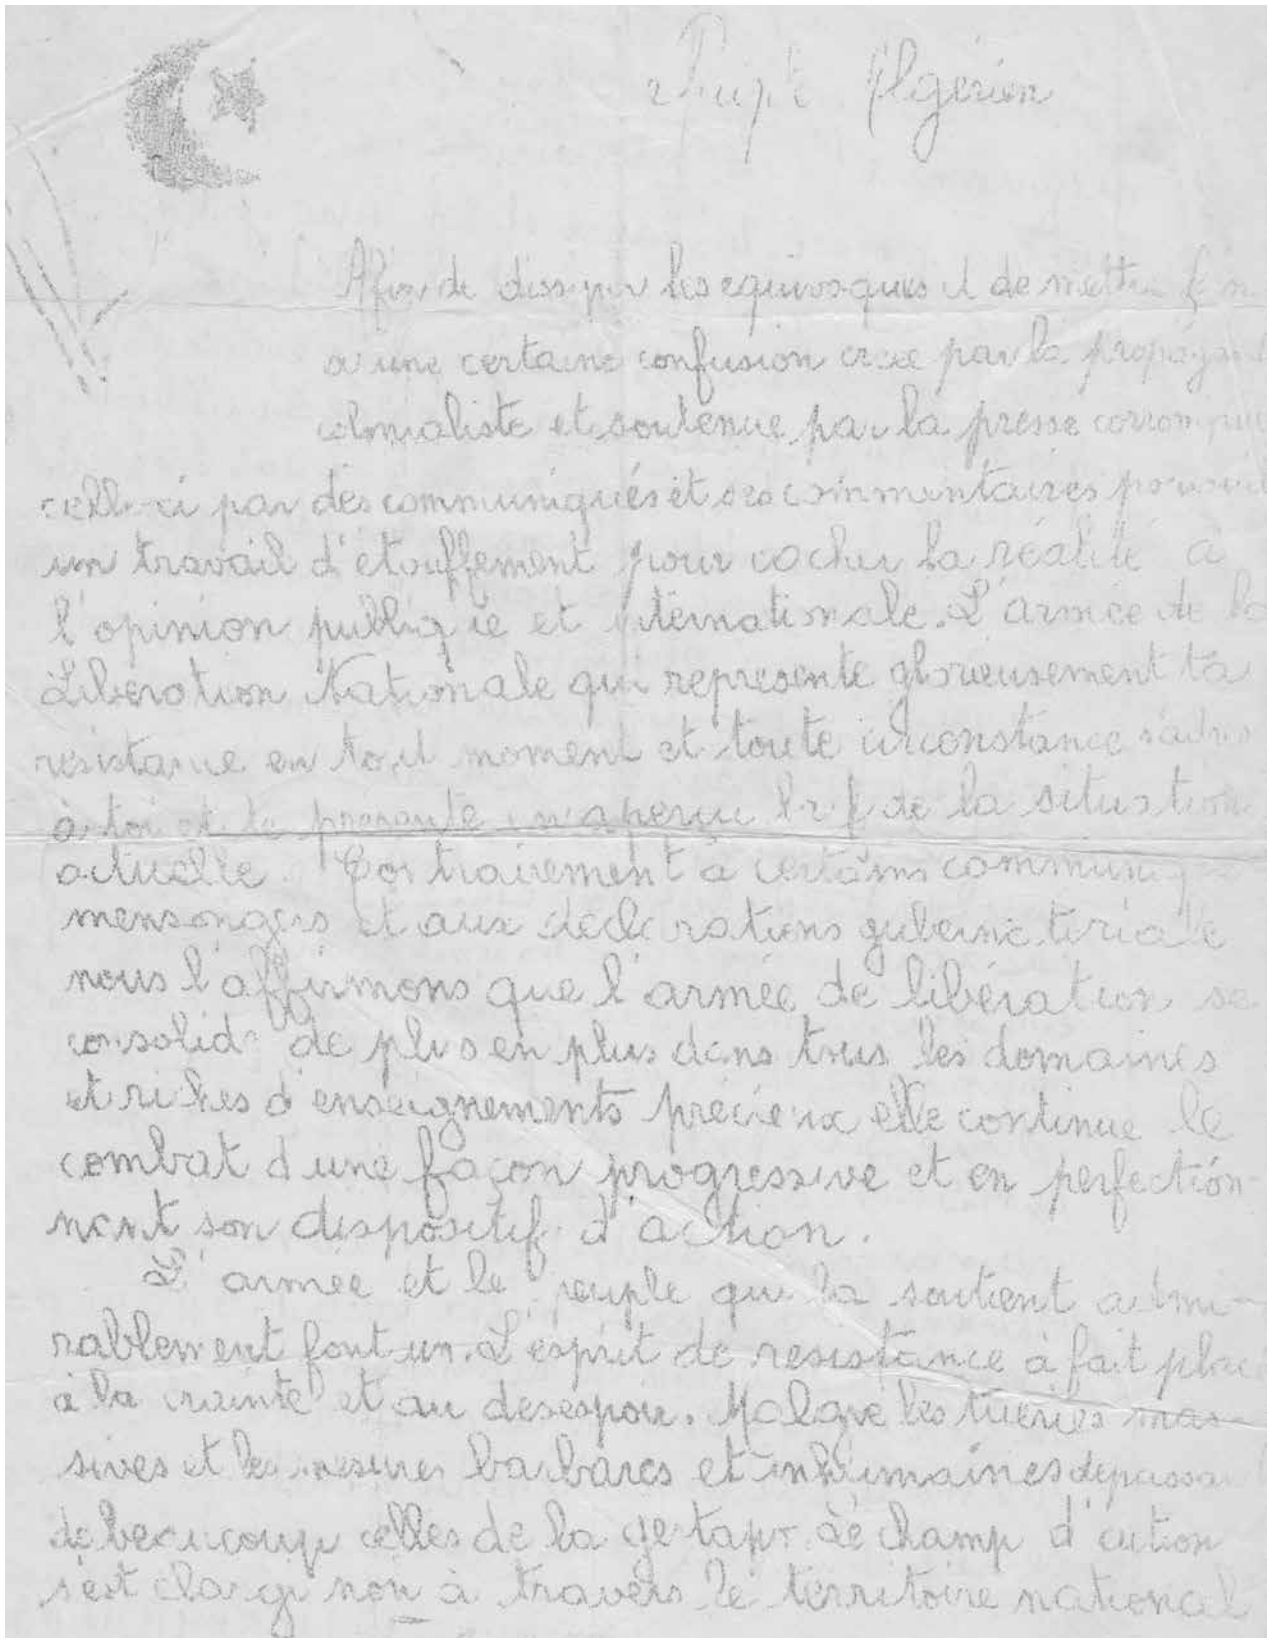 Peuple Algérien
Afin de dissiper les equivoques et de mettre fin
a une certaine confusion crée par la propagand
colonialiste et soutenue par la presse corrompue
celle-ci par des communiqués et ses commentaires poursuit
un travail d'étouffement pour cacher la réalité à
l'opinion publique et internationale. L'armée de la
Libération Nationale qui represente glorieusement ta
resistance en tout moment et toute circonstance s'adres
à toi et te presente un aperçu bref de la situation
actuelle. Contrairement à certains communiq
mensongers et aux déclarations gubernatoriale
nous l'affirmons que l'armée de libération se
consolide de plus en plus dans tous les domaines
et riches d'enseignements précieux elle continue le
combat d'une façon progressive et en perfection-
nant son dispositif d'action.
L'armée et le peuple qui la soutient admi-
rablement font un. L'esprit de resistance à fait place
à la crainte et au desespoir. Malgré les tueries mas-
sives et les mesures barbares et inhumaines depassa
de beaucoup celles de la gestapo Le champ d'action
s'est elargi non à travers le territoire national